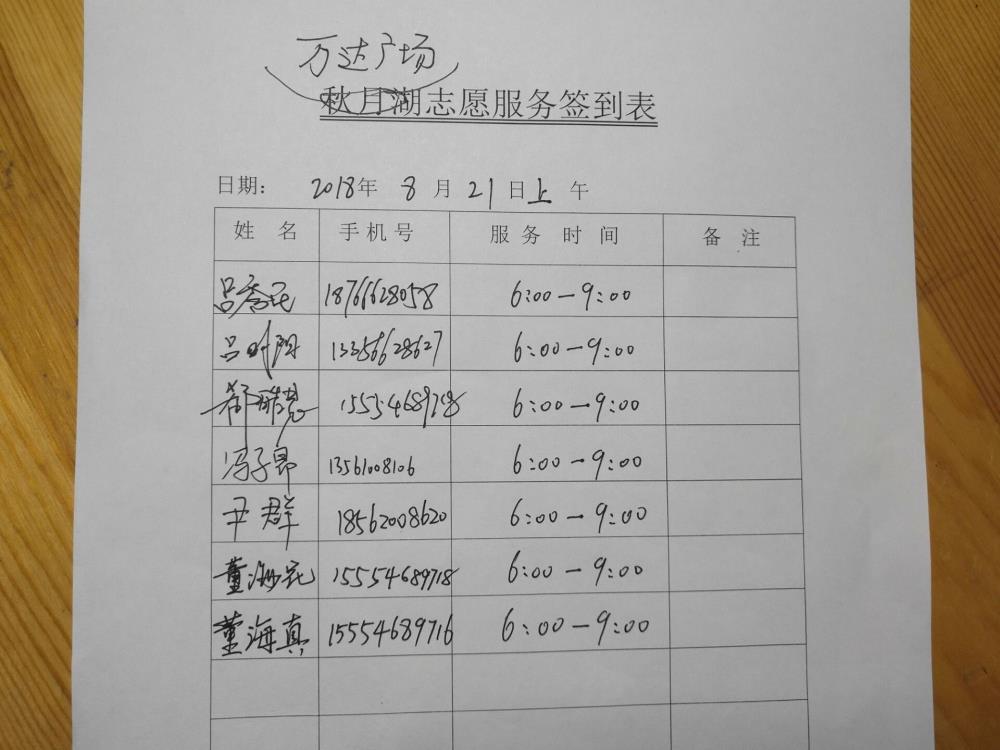 万达广场
秋月湖志愿服务签到表
日期： 2018年 8 月 21 日上 午
姓 名 手机号 服 务 时 间 备 注
吕秀花 18766628058 6:00－9:00
吕时阳 13356628627 6:00－9:00
15554689718 6:00－9:00
冯子昂 13561008106 6:00－9:00
尹群 18562008620 6:00－9:00
董海花 15554689718 6:00－9:00
董海真 15554689716 6:00－9:00